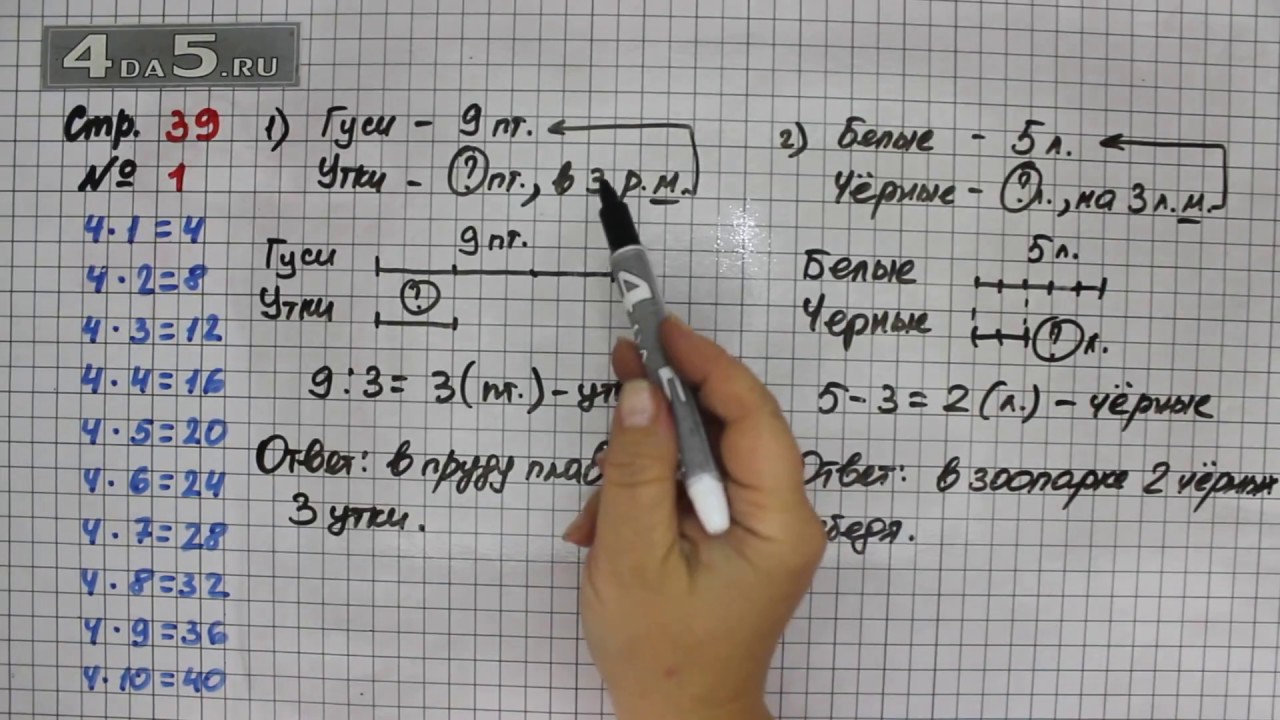 4DA5.RU
Стр. 39
№ 1
4·1=4
4·2=8
4·3=12
4·4=16
4·5=20
4·6=24
4·7=28
4·8=32
4·9=36
4·10=40
1) Гуси - 9 пт.
Утки - ? пт., в 3 р. м.
9 пт.
Гуси
Утки ?
9:3= 3(пт.) -
Ответ: в пруду
3 утки.
2) Белые - 5 л.
Чёрные - ? л., на 3 л. м.
5 л.
Белые
Черные ? л.
5-3=2 (л.) - чёрные
Ответ: в зоопарке 2